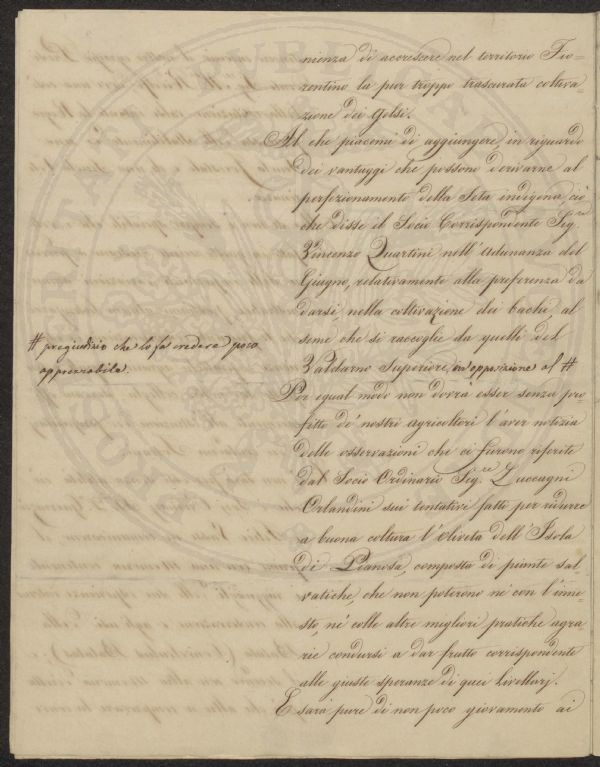 nienza di accrescere nel territorio Fio=
rentino la pur troppo trascurata coltiva=
zione dei Gelsi.
Al che piacemi di aggiungere, in riguardo
dei vantaggi che possono derivarne al
perfezionamento della Seta indigena, ciò
che disse il Socio Corrispondente Sig.re
Vincenzo Quartini nell'Adunanza del
Giugno, relativamente alla preferenza da
darsi, nella coltivazione dei bachi, al
seme che si raccoglie da quelli del
Valdarno Superiore, in opposizione al #
# pregiudizio che lo fa credere poco
apprezzabile.
Per egual modo non dovrà esser senza pro=
fitto de' nostri agricoltori l'aver notizia
delle osservazioni che ci furono riferite
dal Socio Ordinario Sig.re Zuccagni
Orlandini sui tentativi fatti per ridurre
a buona coltura l'oliveta dell'Isola
di Pianosa, composta di piante sal=
vatiche, che non poterono nè con l'inne=
sto, nè colle altre migliori pratiche agra=
rie condursi a dar frutto corrispondente
alle giuste speranze di quei Livellarj.
E sarà pure di non poco giovamento ai